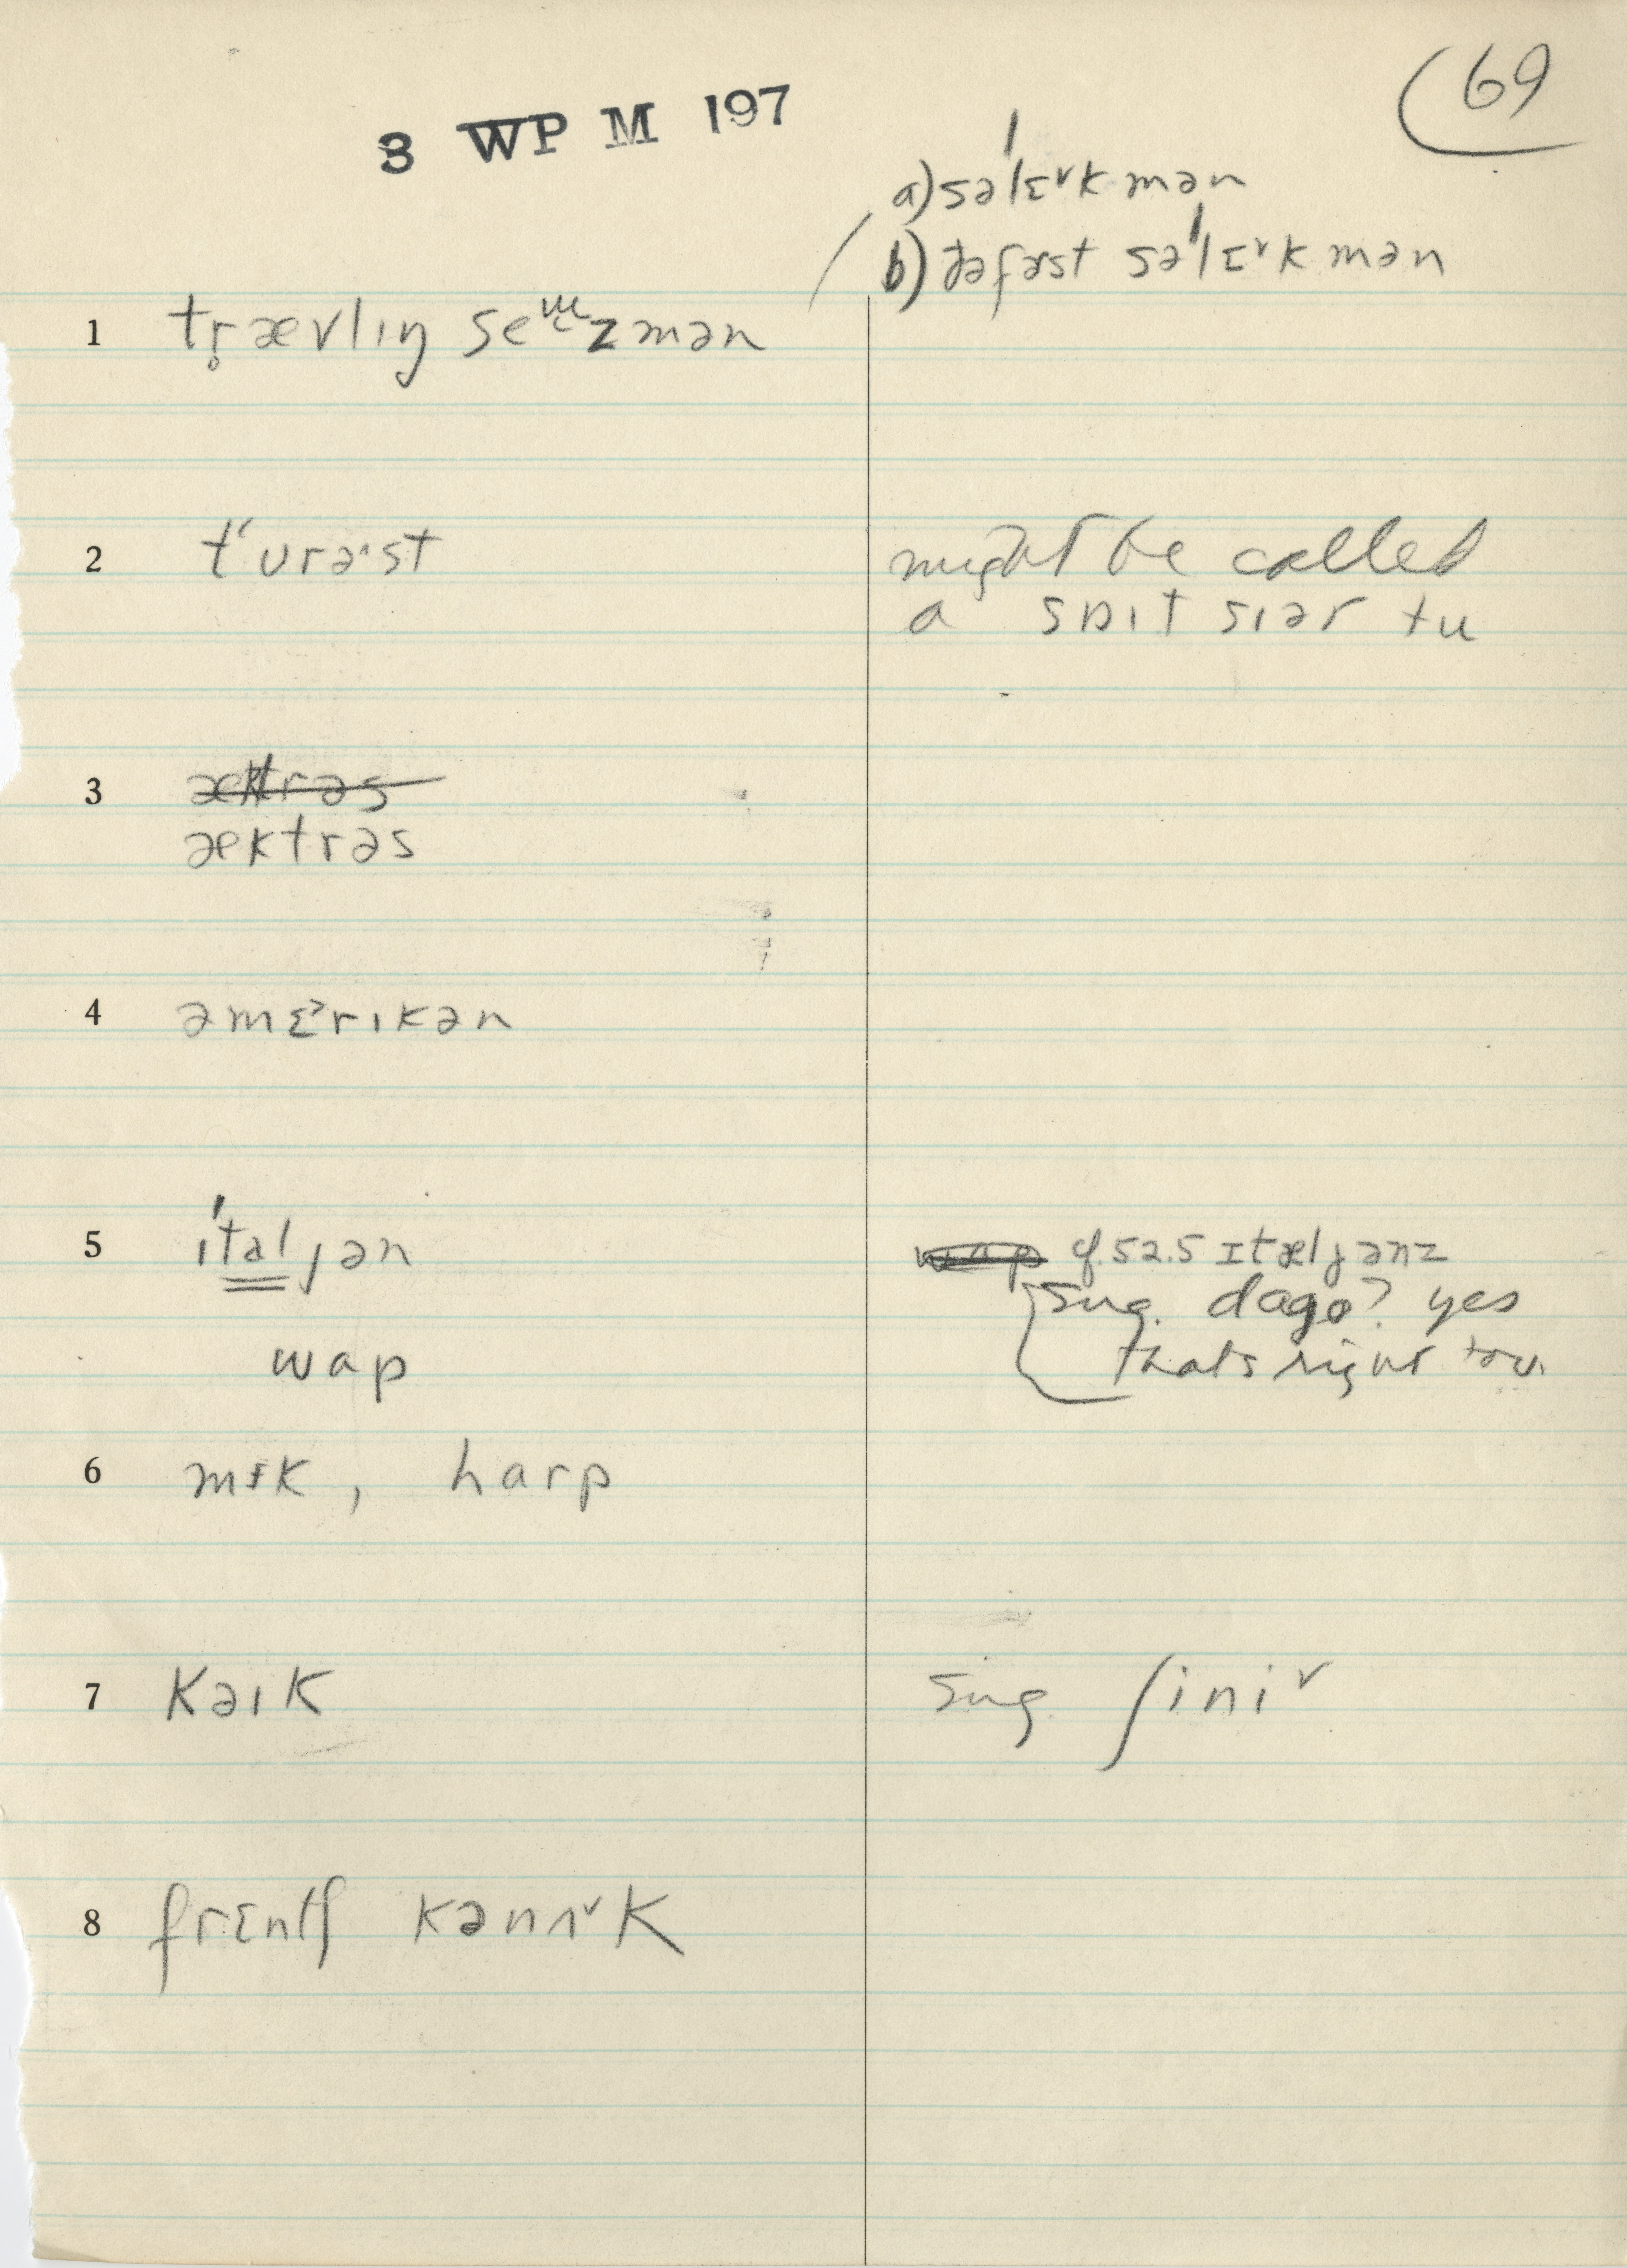 69
3 WP M 197
a) səˈlɛ˅kmən
b) ðəfɜst səˈlɛ˅kmən
1 tr̥ævlɪŋ seɯzmən
2 tʻʊrə·st
might be called
a sɒɪt sɪər tu
3 æktrəs
æktrəs
4 əmɛ˃rɪkən
5 ˈɪtaljən
cf. 52.5 ɪtæljənz
sug. dago? yes
wap
that's right too.
6 mɨk, harp
7 kəɪk
sug. ʃini˅
8 frɛntʃ kənʌ˅k